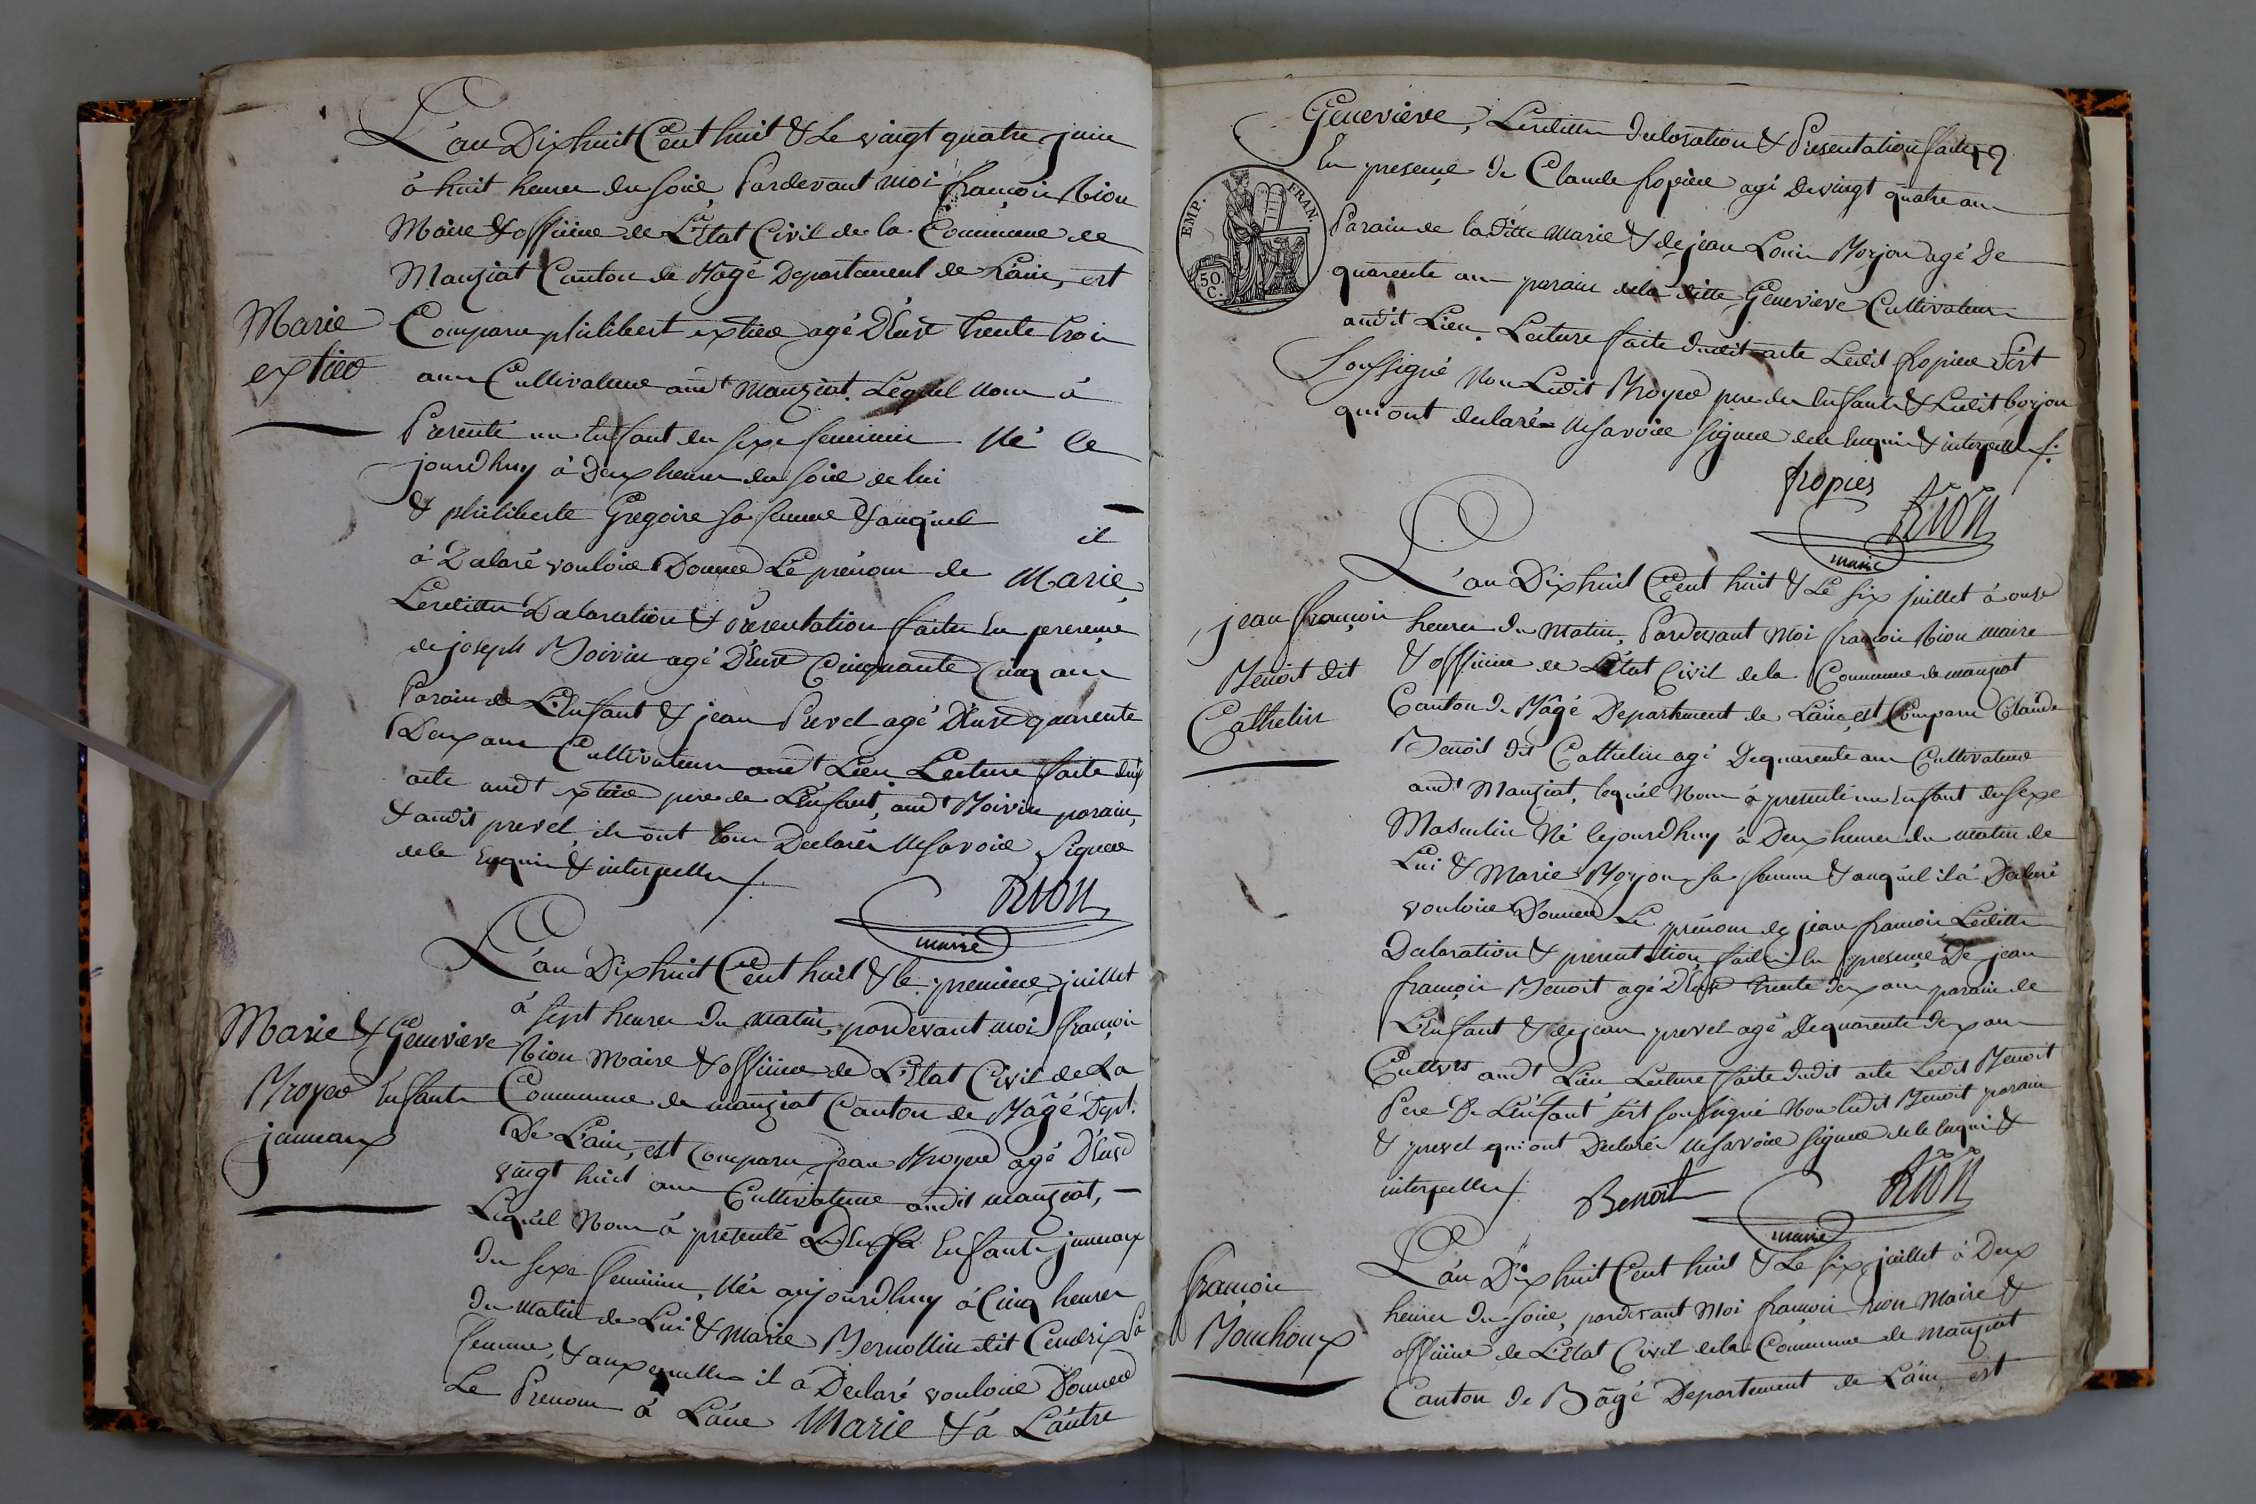 L'an Dix huit Cent huit & Le vingt quatre juin
à huit heures du soir, Pardevant moi françois Rion
Maire & officier de L'Etat Civil de la Commune de
Manziat Canton de Bagé Departement de L'ain, est
Marie
extier
Comparu philibert extier agé D'Env trente trois
ans Cultivateur aud.t Manziat. Lequel nous à
Presenté un Enfant du sexe feminin Né Ce
jourd'huy à Deux heures du soir de lui
& philiberte Gregoire sa femme & auquel il
à Declaré vouloir Donner Le prénom de Marie,
Lesdittes Declaration & Presentation faites En presence
de joseph Boivin agé D'Env Cinquante Cinq ans
Parain de L'Enfant & jean Prevel agé D'Env quarente
Deux ans Cultivateurs aud.t Lieu Lecture faite du p.
acte aud.t extier pere de L'Enfant, aud.t Boivin parain,
& audit prevel, ils ont tous Declarés Ne savoir Signer
de le Enquis & interpellés /.
Rion
maire
L'an Dix huit Cent huit & le premier juillet
à sept heures du matin, pardevant moi françois
Marie & Genevieve
Broyer Enfants
jumeaux
Rion Maire & officier de L'Etat Civil de La
Commune de manziat Canton de Bâgé Dept.
De L'ain, est Comparu Jean Broyer agé D'Env
vingt huit ans Cultivateur audit manziat,
Lequel Nous à presenté Enfants jumeaux
Du sexe feminin, Nés aujourd'huy à Cinq heures
Du matin de Lui & Marie Bernollin dit Cendrix sa
femme, & auxquelles il à Declaré vouloir Donner
Le Prenom à L'une Marie & à L'autre
Genevieve, Lesdittes declaration & Presentation faites
En presence de Claude fropier agé De vingt quatre ans
EMP. FRAN.
50 C.
Parain de la Ditte Marie & de jean Louis Borjon agé De
quarente ans parain de la ditte Genevieve Cultivateurs
audit Lieu. Lecture faite dudit acte Ledit fropier S'est
Soussigné Non Ledit Broyer pere des Enfants & Ledit borjon
qui ont declarés Ne savoir signer de le Enquis & interpellés /.
fropier
Rion
maire
L'an Dix huit Cent huit & Le six juillet à onze
jean françois
Benoit dit
Cathelin
heures du Matin, Pardevant Moi françois Rion maire
& officier de L'Etat Civil de la Commune de manziat
Canton de Bâgé Departement de L'ain, est Comparu Claude
Benoit dit Cathelin agé De quarente ans Cultivateur
aud.t Manziat, lequel Nous à presenté un Enfant du sexe
Masculin Né Cejourd'huy à Deux heures du matin de
Lui & Marie Borjon sa femme & auquel il à Declaré
vouloir Donner Le prénom de jean françois Lesdittes
Declaration & presentation faites En presence De jean
françois Benoit agé D'Env trente deux ans parain de
L'Enfant & de jean prevel agé De quarente deux ans
Cult.vrs aud.t Lieu Lecture faite dudit acte Ledit Benoit
Pere De L'Enfant s'est soussigné Non ledit Benoit parain
& prevel qui ont Declarés Ne savoir signer de le Enquis &
interpellés /.
Benoit
Rion
maire
L'an Dix huit Cent huit & Le six juillet à Deux
françois
Bouchoux
heures du soir, pardevant Moi françois rion Maire &
officier de L'Etat Civil de la Commune de Manziat
Canton de Bâgé Departement de L'ain, est